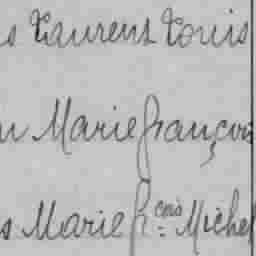 s Laurent Louis
n Marie françois
s Marie f.cois Michel